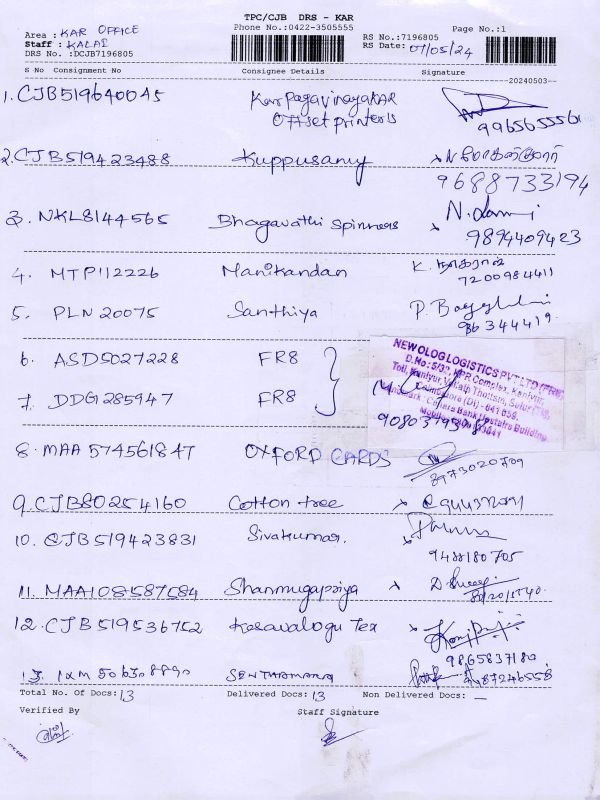 TPC/CJB DRS - KAR
Phone No.:0422-3505555
Area : KAR OFFICE
Staff : KALAI
DRS No. :DCJB7196805
RS No.:7196805
RS Date: 07/05/24
Page No.:1
S No Consignment No Consignee Details Signature
20240503
1. CJB519640045 Karpagavinayakar
Offset printers
9965655561
2. CJB519423488 Kuppusamy
9688733194
3. NKL8144565 Bhagavathi Spinners
9894409423
4. MTP112226 Manikandan K.
7200984411
5. PLN 20075 Santhiya P.
6. ASD5027228 FR8
7. DDG1285947 FR8
NEWOLOG LOGISTICS PVT LTD
D.No: 5/3, KPR Complex, Kaniyur,
Coimbatore (Dt) - 641 659.
Landmark: Canara Bank Upstairs Building
8. MAA 574561847 OXFORD CARDS
8973020709
9. CJB80254160 Cotton tree
10. CJB519423831 Sivakumar.
9488180705
11. MAA1081587584 Shanmugapriya
12. CJB519536752 Kesavalogu Tex
9865837180
13.
Total No. Of Docs: 13 Delivered Docs: 13 Non Delivered Docs: —
Verified By Staff Signature